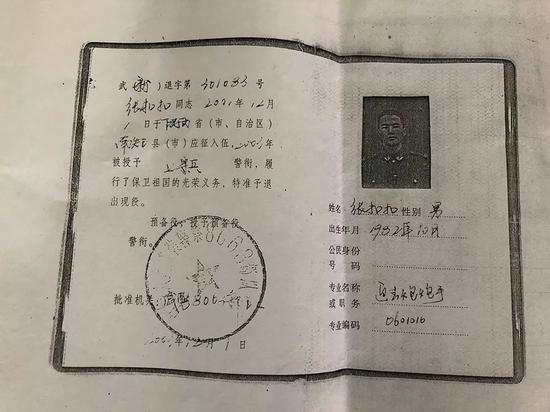 武(新)退字第301033号
张扣扣同志2001年12月
1日于陕西省(市、自治区)
南郑县(市)应征入伍,2003年
被授予上等兵警衔,履
行了保卫祖国的光荣义务,特准予退
出现役。
预备役:授予预备役
警衔。
批准机关:
年12月1日
姓名 张扣扣 性别 男
出生年月 1982年10月
公民身份
号码
专业名称
或职务 迫击炮炮手
专业编码 0601010